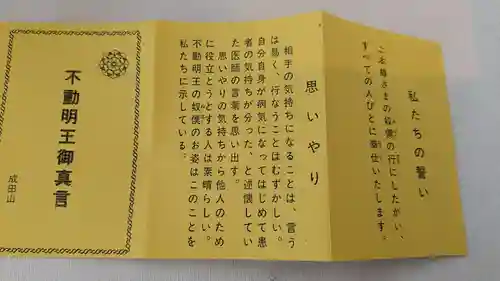 私たちの誓い
ご本尊さまの奴僕の行にしたがい、
すべての人びとに奉仕いたします。
思いやり
相手の気持ちになることは、言う
は易く、行なうことはむずかしい。
自分自身が病気になってはじめて患
者の気持ちが分った、と述懐してい
た医師の言葉を思い出す。
思いやりの気持ちから他人のため
に役立とうとする人は素晴らしい。
不動明王の奴僕のお姿はこのことを
私たちに示している。
不動明王御真言
成田山